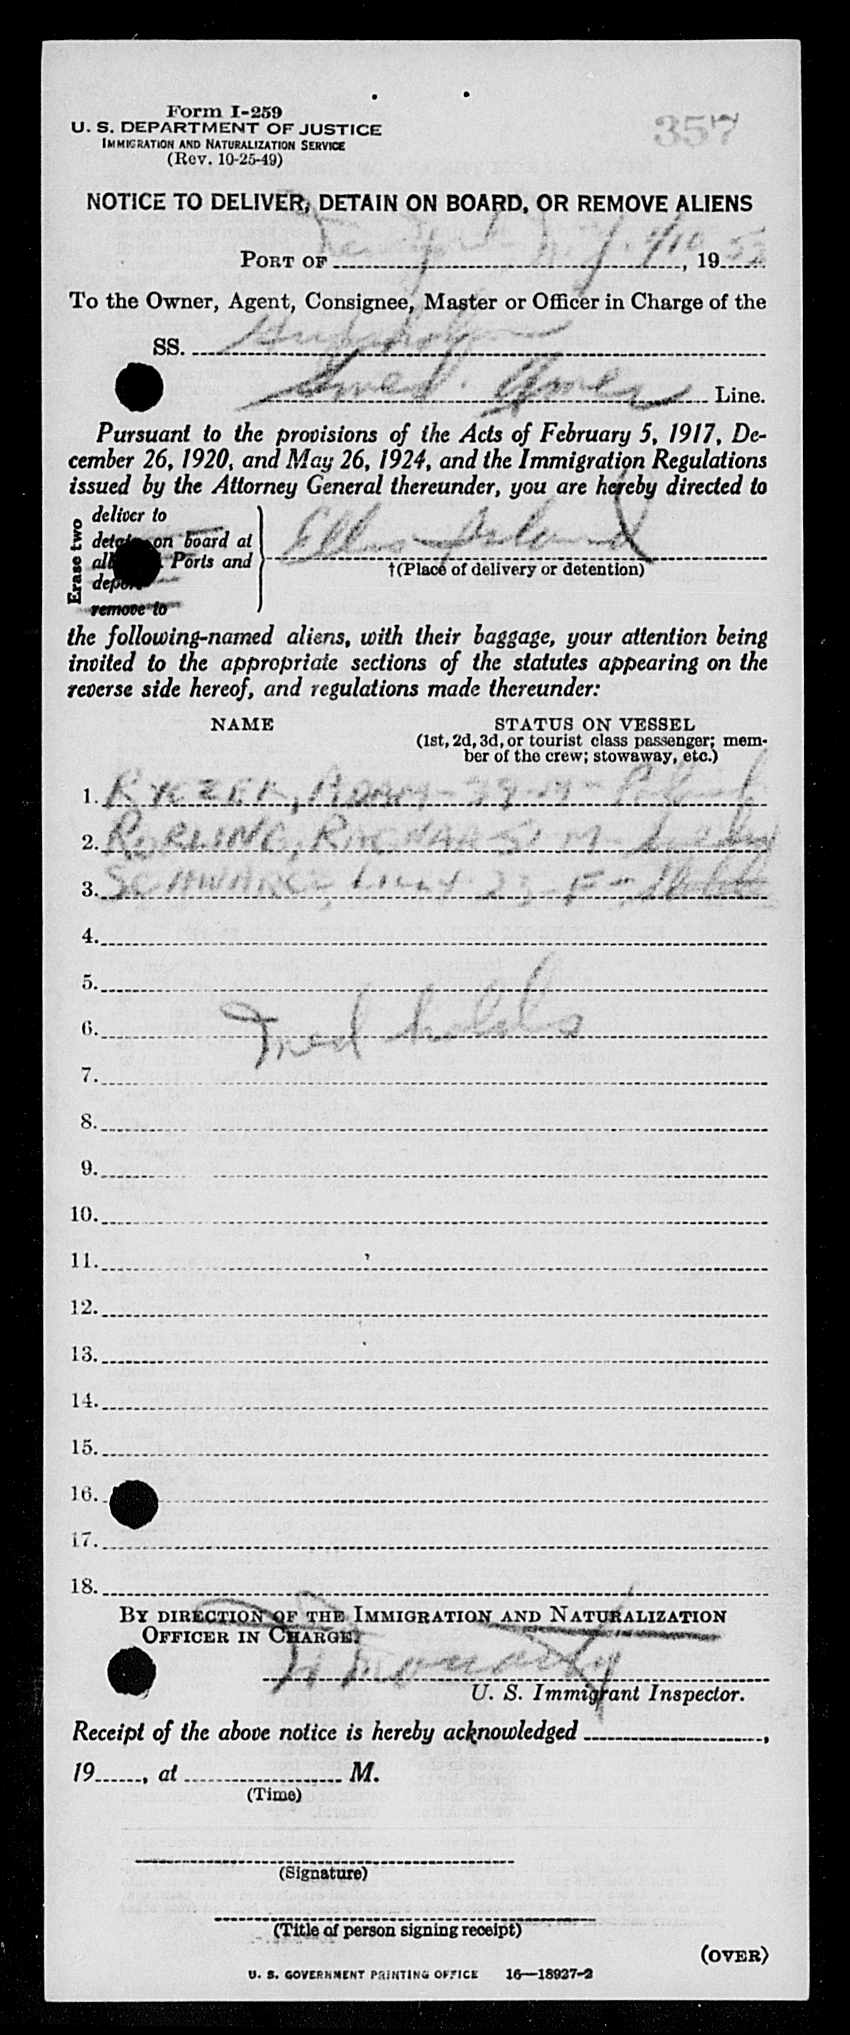 Form I-259
U. S. DEPARTMENT OF JUSTICE
IMMIGRATION AND NATURALIZATION SERVICE
(Rev. 10-25-49)
357
NOTICE TO DELIVER, DETAIN ON BOARD, OR REMOVE ALIENS
PORT OF New York N.Y. 4/10, 1952
To the Owner, Agent, Consignee, Master or Officer in Charge of the
SS. Gripsholm
Swed. Amer Line.
Pursuant to the provisions of the Acts of February 5, 1917, De-
cember 26, 1920, and May 26, 1924, and the Immigration Regulations
issued by the Attorney General thereunder, you are hereby directed to
Erase two
deliver to
detain on board at
all Ports and
deport
remove to
Ellis Island
†(Place of delivery or detention)
the following-named aliens, with their baggage, your attention being
invited to the appropriate sections of the statutes appearing on the
reverse side hereof, and regulations made thereunder:
NAME
STATUS ON VESSEL
(1st, 2d, 3d, or tourist class passenger; mem-
ber of the crew; stowaway, etc.)
1. ADAM - 39 - M -
2. RAGNAR 51 M -
3. LILLY 23 - F -
4.
5.
6. Med holds
7.
8.
9.
10.
11.
12.
13.
14.
15.
16.
17.
18.
BY DIRECTION OF THE IMMIGRATION AND NATURALIZATION
OFFICER IN CHARGE:
U. S. Immigrant Inspector.
Receipt of the above notice is hereby acknowledged,
19, at M.
(Time)
(Signature)
(Title of person signing receipt)
(OVER)
U. S. GOVERNMENT PRINTING OFFICE 16—18927-2